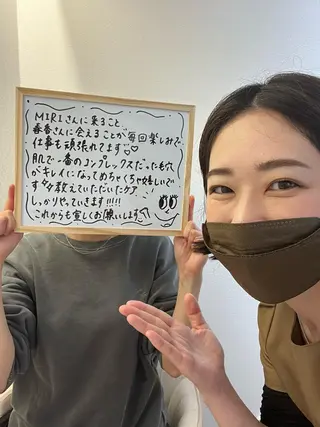 MIRIさんに来ること、
春香さんに会えることが毎回楽しみで
仕事も頑張れてます♡♡
肌で一番のコンプレックスだった毛穴
がキレイになってめちゃくちゃ嬉しいで
す 教えていただいたケア
しっかりやっていきます!!!!!
これからも宜しくお願いします